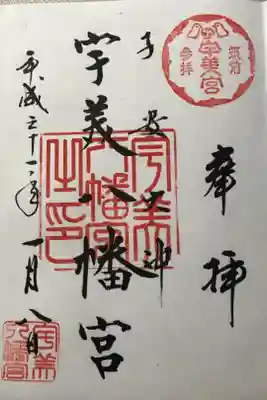 奉拝
筑前
宇美宮
参拝
子安大神
宇美八幡宮
宇美
八幡宮
之印
平成三十一年一月八日
宇美
八幡宮